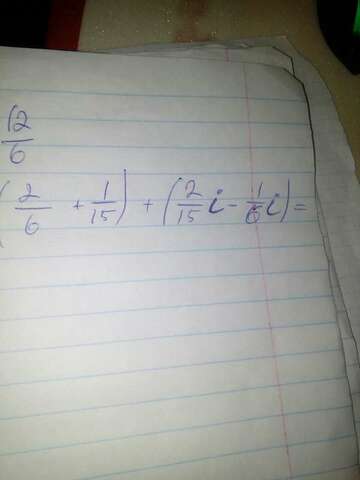 12/6
(2/6 + 1/15) + (2/15 i - 1/6 i) =